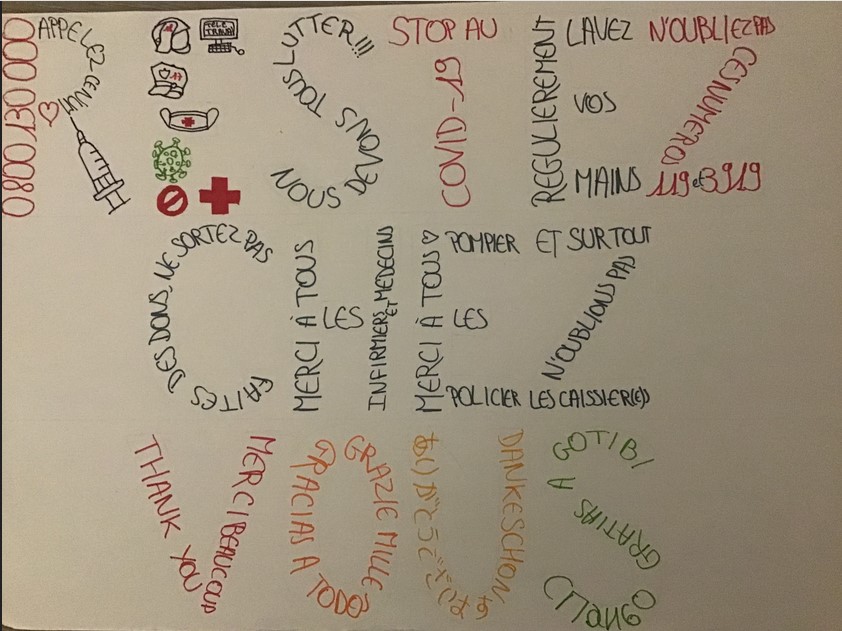 APPELEZ CE NUM
0800 130 000
TELE
TRAVAIL
NOUS DEVONS TOUS LUTTER!!!
STOP AU
COVID-19
LAVEZ
VOS
MAINS
REGULIEREMENT
N'OUBLIEZ PAS
CES NUMEROS
119 et 3919
FAITES DES DONS, NE SORTEZ PAS
MERCI À TOUS
LES
INFIRMIERS ET MEDECINS
MERCI À TOUS ♡
POMPIER
LES
POLICIER
ET SURTOUT
N'OUBLIONS PAS
LES CAISSIER(E)S
THANK YOU
MERCI BEAUCOUP
GRACIAS A TODOS
GRAZIE MILLE
ありがとうございます
DANKESCHÖN
GOTIBI
GRATIAS A